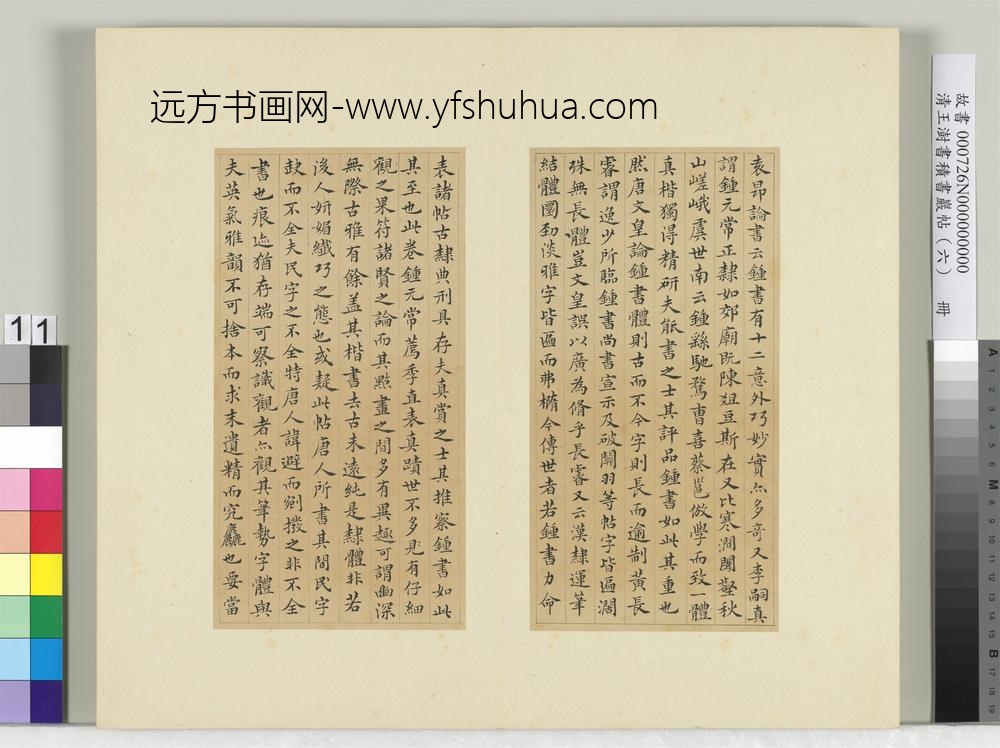 远方书画网-www.yfshuhua.com
故書 000726N000000000
清王澍書積書巖帖（六） 冊
袁昂論書云鍾書有十二意外巧妙實亦多奇又李嗣真
謂鍾元常正隸如郊廟既陳俎豆斯在又比寒澗閴壑秋
山嵯峨虞世南云鍾繇馳騖曹喜蔡邕倣學而致一體
真楷獨得精研夫能書之士其評品鍾書如此其重也
然唐文皇論鍾書體則古而不今字則長而逾制黃長
睿謂逸少所臨鍾書尚書宣示及破關羽等帖字皆匾闊
殊無長體豈文皇誤以廣為脩乎長睿又云漢隸運筆
結體圜勁淡雅字皆匾而弗橢今傳世者若鍾書力命
表諸帖古隸典刑具存夫真賞之士其推察鍾書如此
其至也此卷鍾元常薦季直表真蹟世不多見有仔細
觀之果符諸賢之論而其點畫之間多有異趣可謂幽深
無際古雅有餘蓋其楷書去古未遠純是隸體非若
後人妍媚纖巧之態也或疑此帖唐人所書其間民字
缺而不全夫民字之不全特唐人諱避而剜撥之非不全
書也痕迹猶存端可察識觀者亦觀其筆勢字體與
夫英氣雅韻不可捨本而求末遺精而究麤也要當
11
A 1 2 3 4 5 6 M 8 9 10 11 12 13 14 15 B 17 18 19